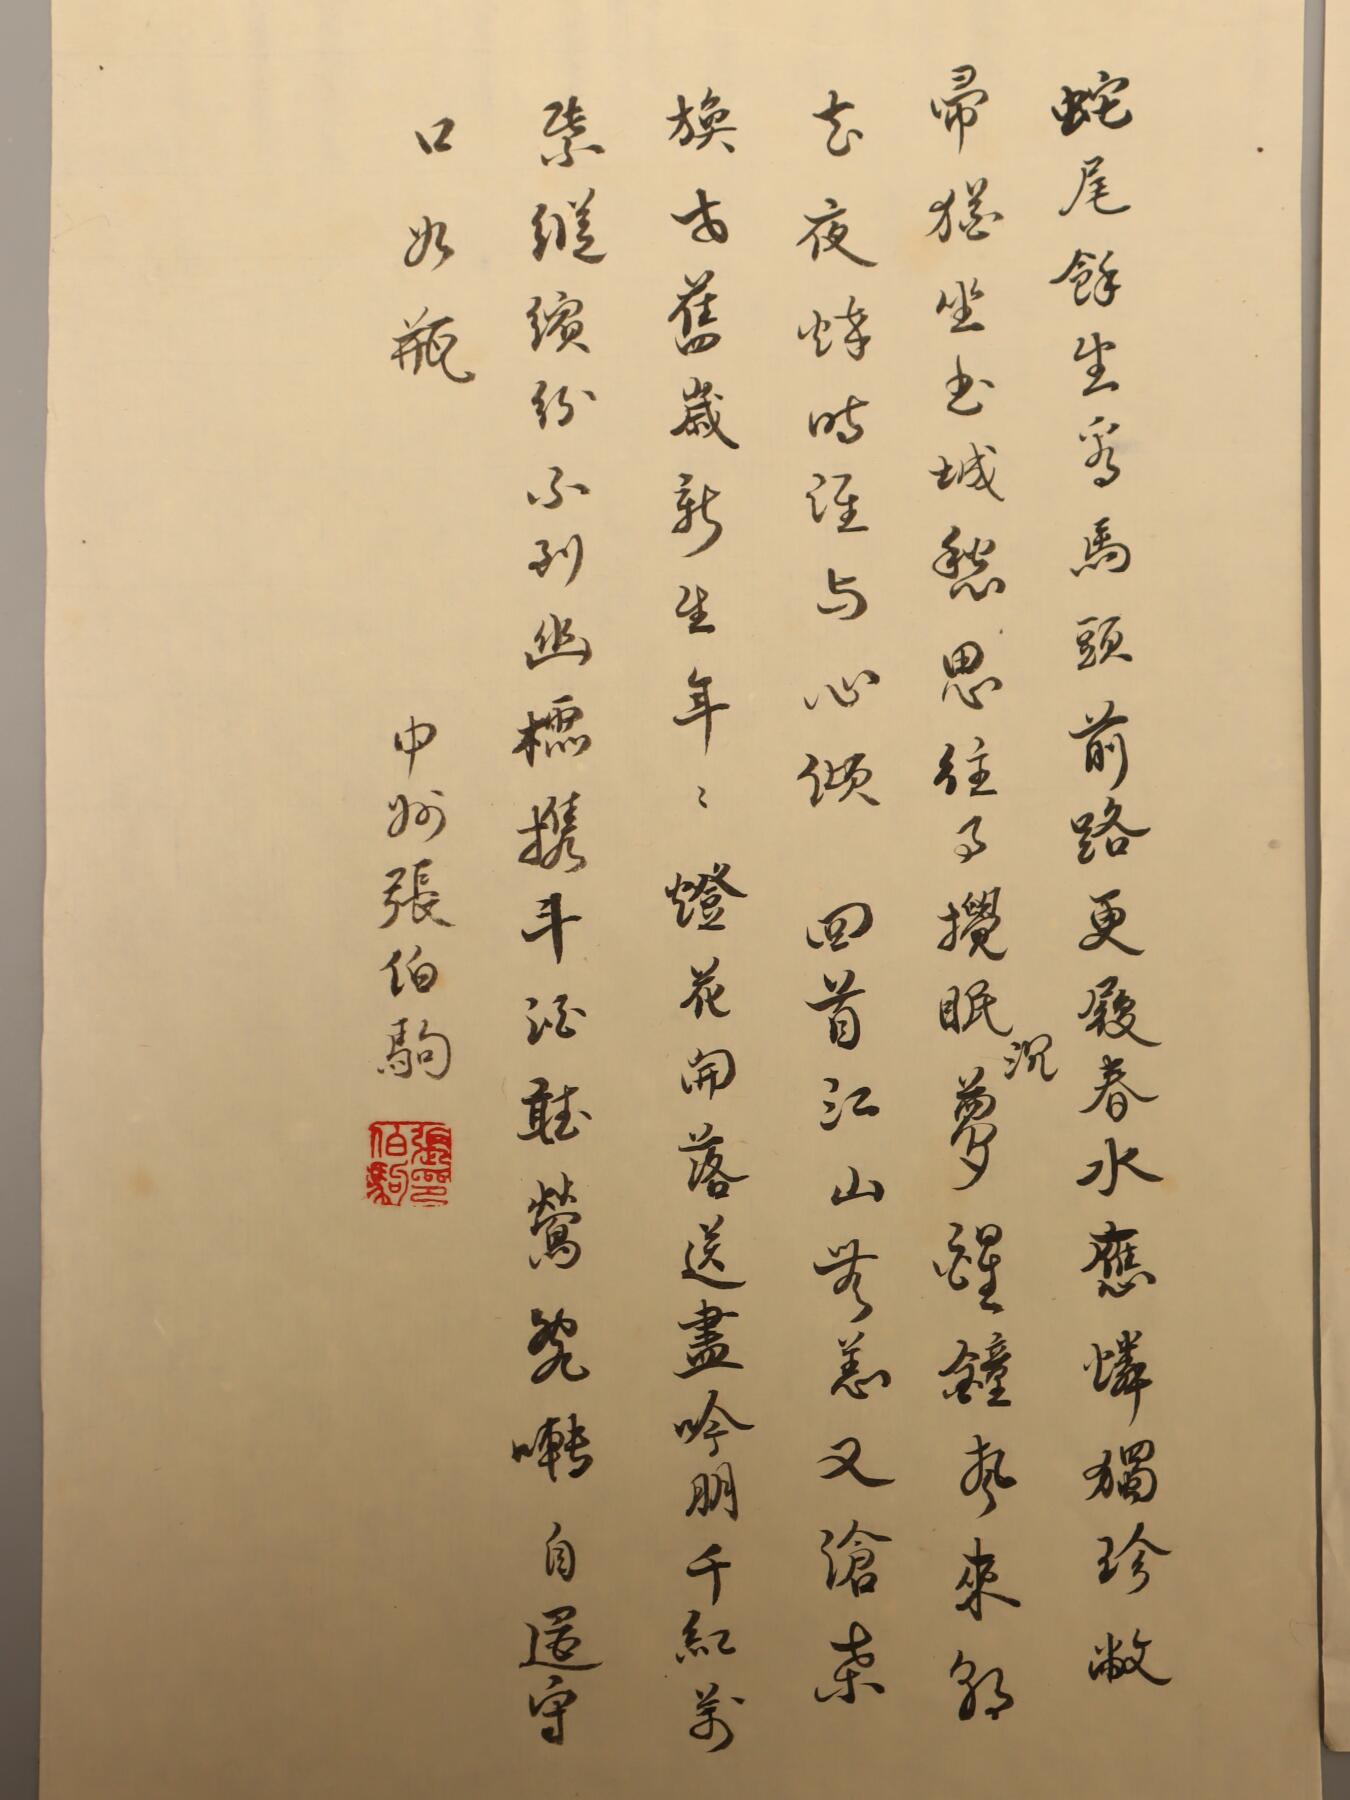 蛇尾餘生看馬頭前路更履春水應憐獨珍敝
帚猶坐書城愁思往事攪眠沉夢醒鐘聲來
夜時誰与心傾 回首江山無恙又滄桑
換舊歲新生年々燈花開落送盡吟朋千紅萬
紫縱繽紛不到幽櫺攜斗酒聽鶯宛囀自還守
口如瓶
中州張伯駒
張伯駒印